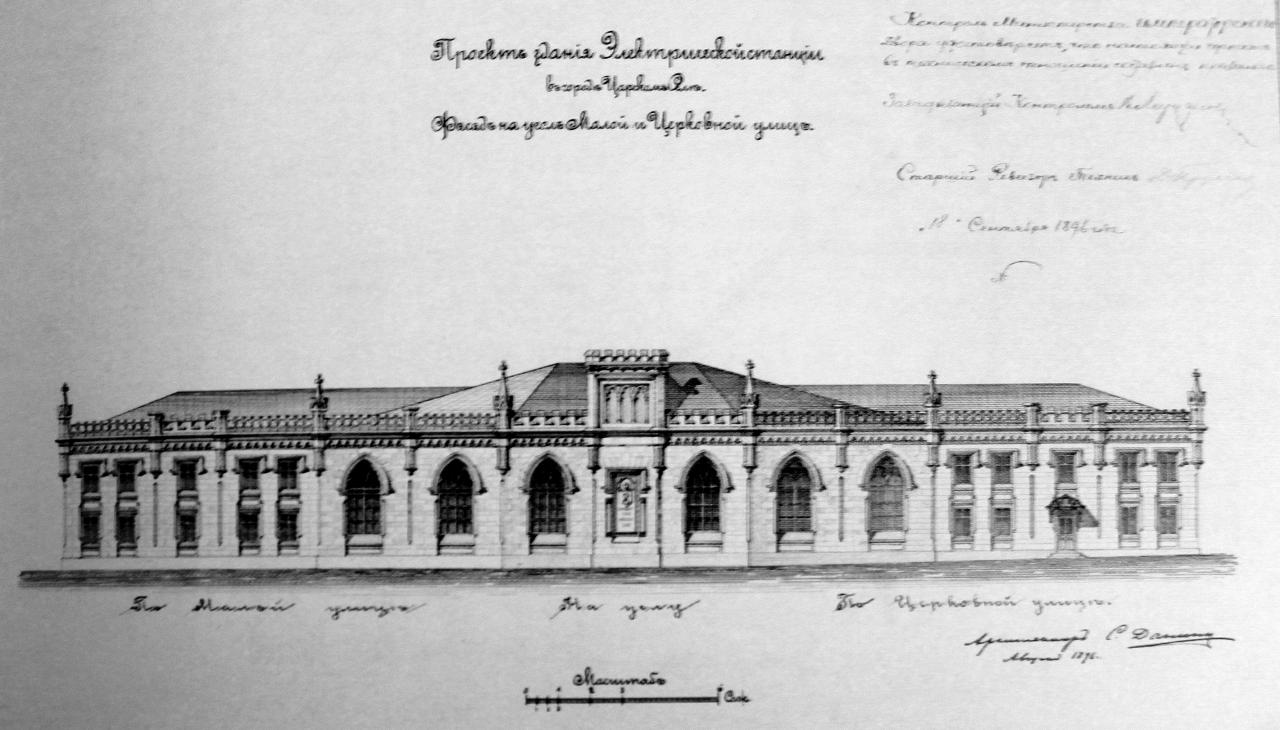 Проектъ зданія Электрической станціи
въ городѣ Царскомъ Селѣ.
Фасадъ на уголъ Малой и Церковной улицъ.
Контроль Министерства Императорскаго
Двора удостовѣряетъ, что
въ техническомъ отношеніи
Завѣдывающій Контролемъ
Старшій Ревизоръ Техникъ
"18" Сентября 1896 года
По Малой улицѣ
На углу
По Церковной улицѣ.
Архитекторъ С. Данини
Августъ 1896.
Масштабъ
Саж.